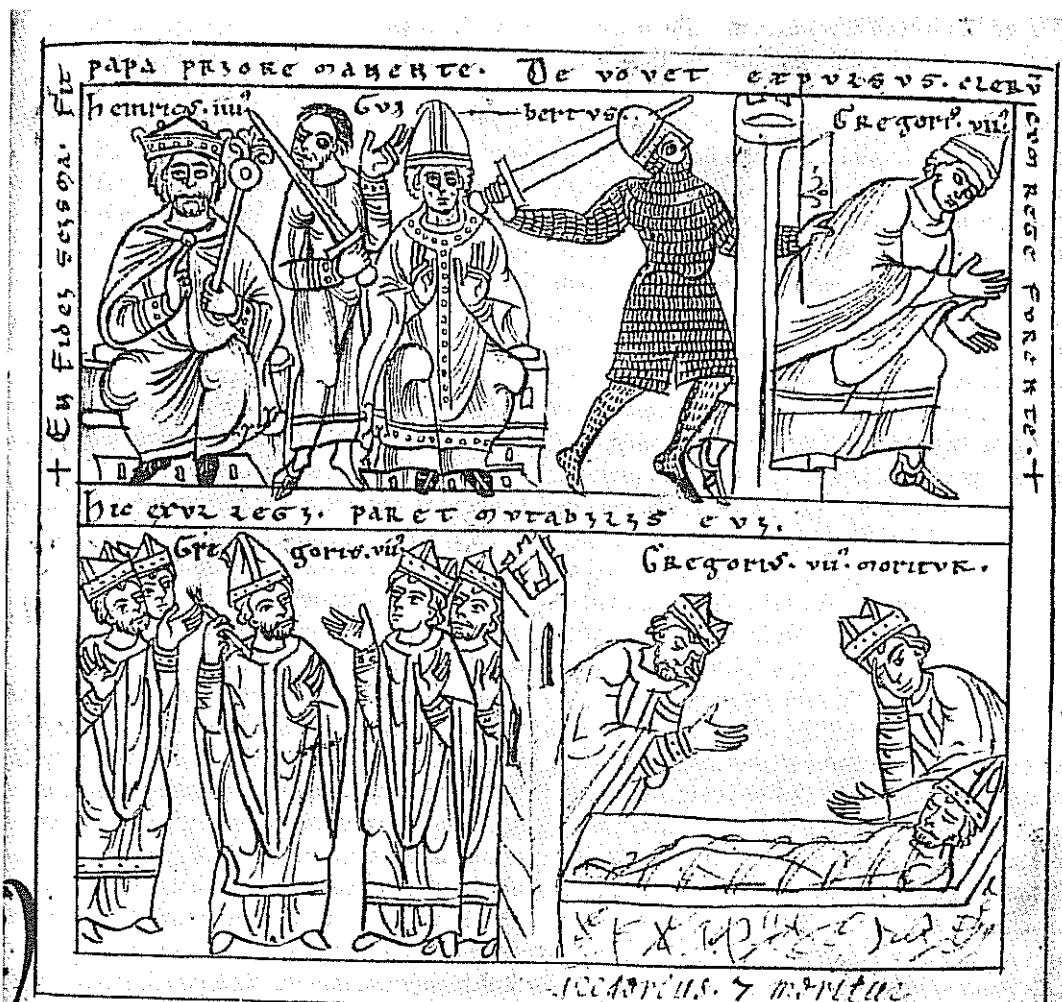 + En fides scisma. Fit
papa priore manente. De vovet expulsus. cleru
cum rege furente. +
heinricus. iiii⁹
Gui bertus.
Gregori⁹. vii⁹
hic exul regi. paret mutabilis
Gregorius. vii⁹
Gregorius. vii⁹. moritur.
7 moritur